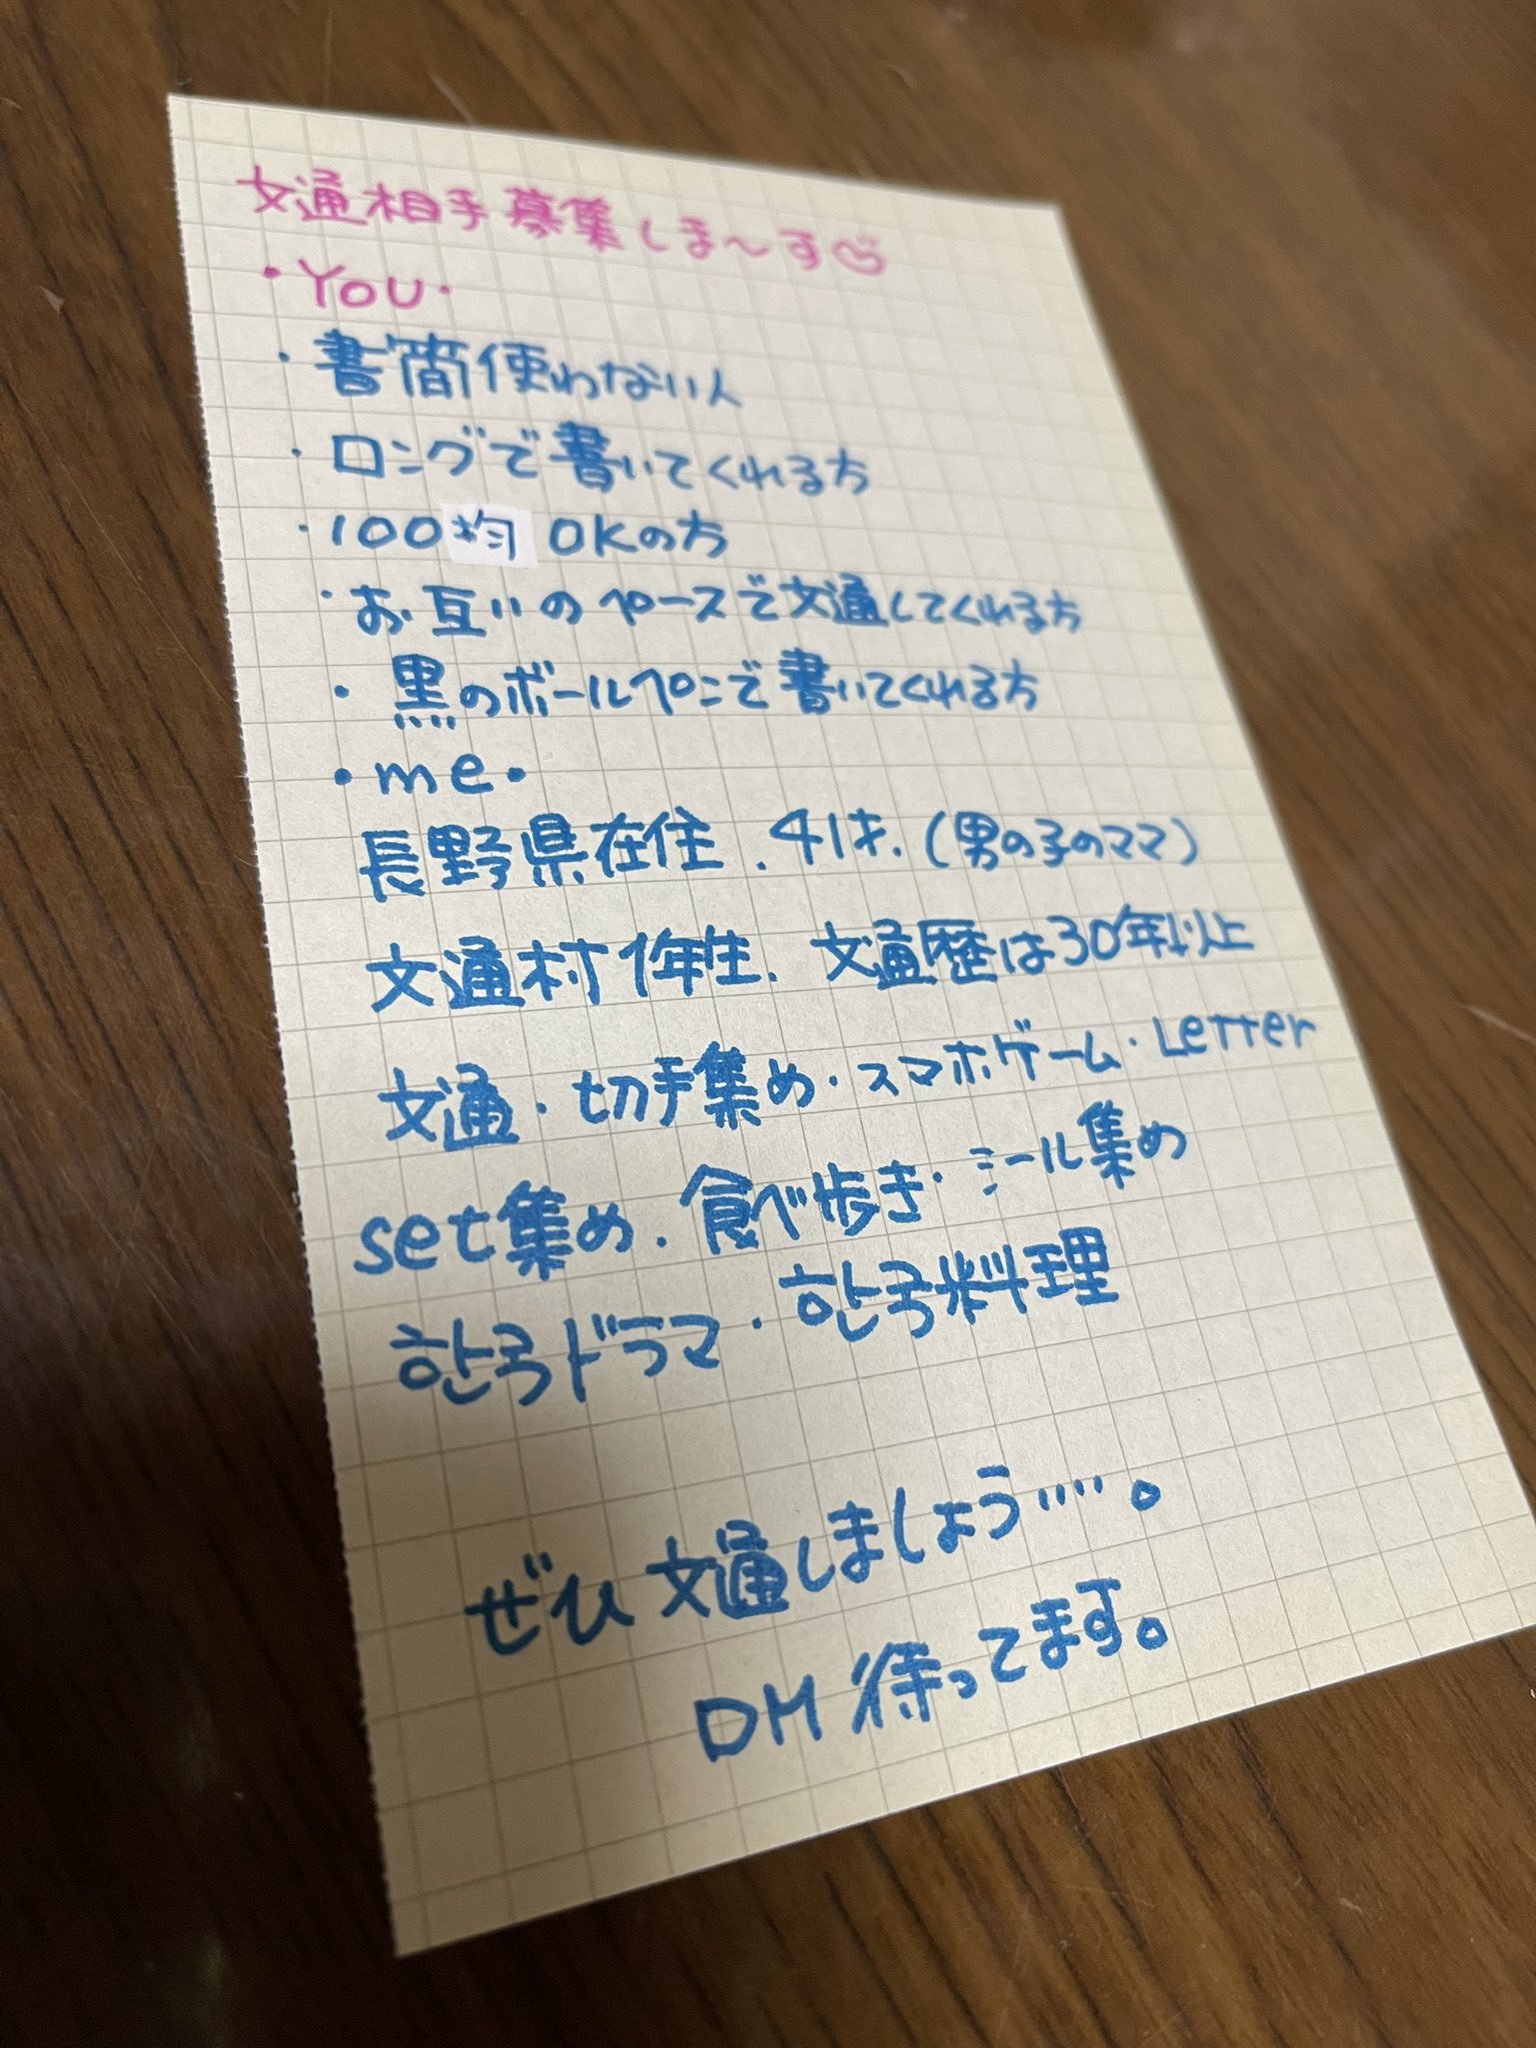 文通相手募集しま〜す
・YOU・
・書簡使わない人
・ロングで書いてくれる方
・100均OKの方
・お互いのペースで文通してくれる方
・黒のボールペンで書いてくれる方
・me・
長野県在住.41才.(男の子のママ)
文通村1年生.文通歴は30年以上
文通・切手集め・スマホゲーム・Letter
set集め.食べ歩き・シール集め
한국ドラマ・한국料理
ぜひ文通しましょう....。
DM待ってます。